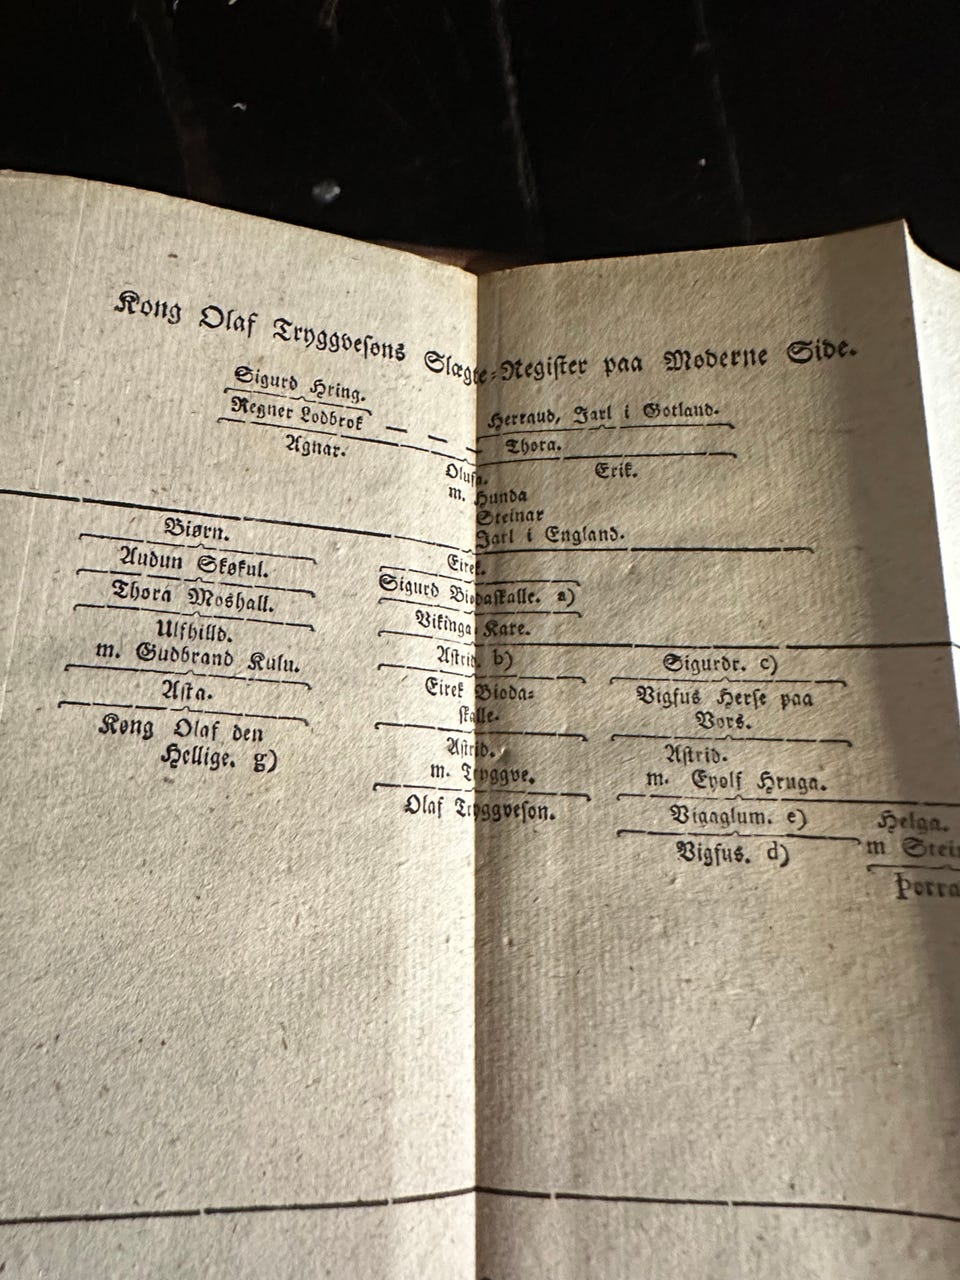 Kong Olaf Tryggvesons Slægte-Register paa Moderne Side.
Sigurd Hring.
Regner Lodbrok — — — Herraud, Jarl i Gotland.
Thora.
Agnar.
Olufa.
Erik.
m. Hunda
Steinar
Jarl i England.
Biørn.
Eirek.
Audun Skøkul.
Sigurd Biodaskalle. a)
Thora Moshall.
Vikinga Kare.
Ulfhilld.
m. Gudbrand Kulu.
Astrid. b)
Sigurdr. c)
Asta.
Eirek Bioda-
skalle.
Vigfus Herse paa
Vors.
Kong Olaf den
Hellige. g)
Astrid.
m. Tryggve.
Astrid.
m. Eyolf Hruga.
Olaf Tryggveson.
Vigaglum. e)
Helga.
Vigfus. d)
m